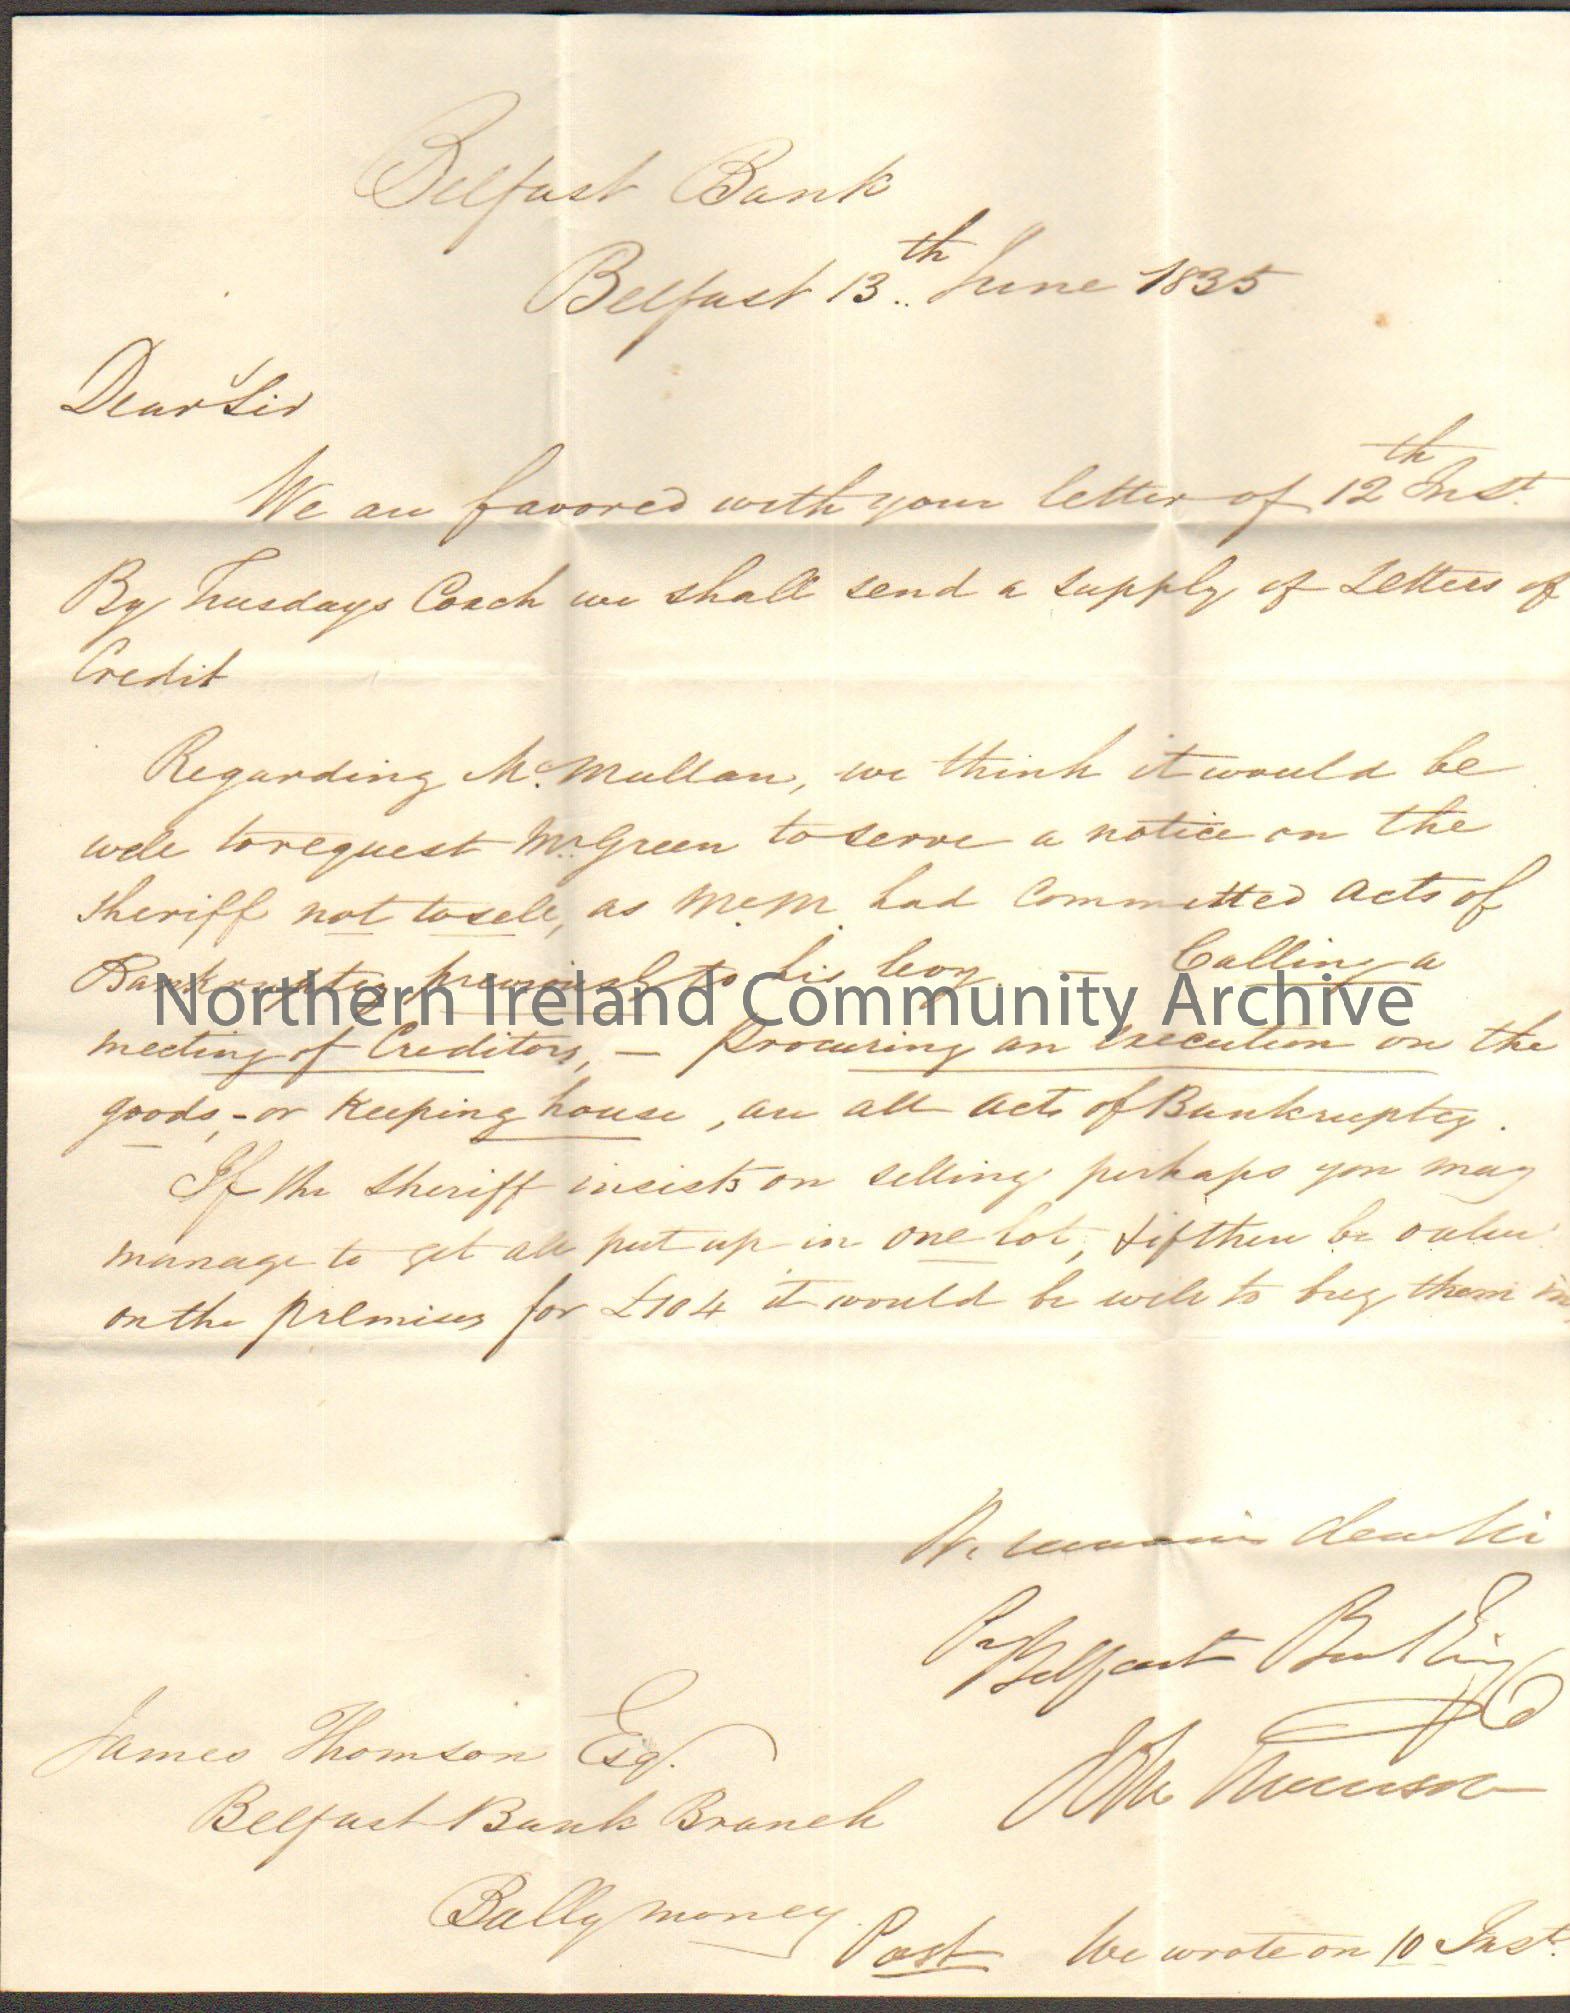 Belfast Bank
Belfast 13th June 1835
Dear Sir
We are favored with your letter of 12th Inst.
By Tuesdays Coach we shall send a supply of Letters of
Credit
Regarding Mc.Mullan, we think it would be
well to request Mr. Green to serve a notice on the
Sheriff not to sell, as McM. had Committed acts of
Bankruptcy previously to his levy — Calling a
Northern Ireland Community Archive
meeting of Creditors, — Procuring an execution on the
goods, - or Keeping house, are all acts of Bankruptcy.
If the Sheriff insists on selling perhaps you may
manage to get all put up in one lot, & if there be value
on the premises for £104 it would be well to buy them in,
We remain dear Sir
Pr Belfast Banking Co
John Thomson
James Thomson Esq.
Belfast Bank Branch
Ballymoney.
Post We wrote on 10 Inst.